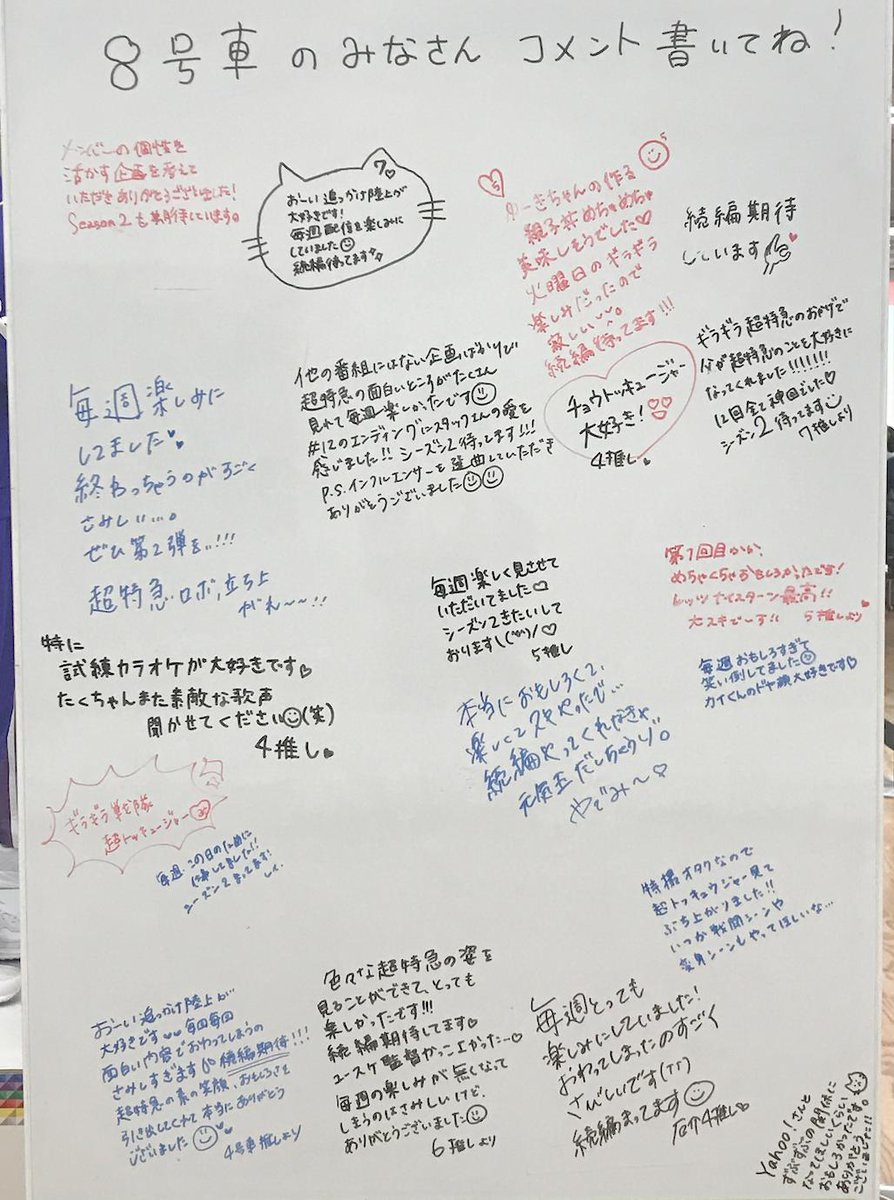 8号車のみなさん コメント書いてね!
メンバーの個性を
活かす企画を考えて
いただきありがとうございました!
Season2も期待しています。
7♡
おーい追っかけ陸上が
大好きです!
毎週配信を楽しみに
していました☺
続編待ってます✧
5
♡5
ゆーきちゃんの作る
親子丼めちゃめちゃ
美味しそうでした♡
火曜日のギラギラ
楽しみだったので
寂しい
続編待ってます!!!
続編期待
しています
毎週楽しみに
してました♥♥
終わっちゃうのがすごく
さみしい…。
ぜひ第2弾を!!!
超特急ロボ、立ち上
がれ〜〜!!
他の番組にはない企画ばかりで
超特急の面白いところがたくさん
見れて毎週楽しかったです☺
#12のエンディングにスタッフさんの愛を
感じました!!シーズン2待ってます!!!
P.S.インフルエンサーを選曲していただき
ありがとうございました☺☺
チョウトッキュージャー
大好き!
4推し♥
ギラギラ超特急のおかげで
が超特急のことを大好きに
なってくれました!!!!!!!
12回全て神回でした♡
シーズン2待ってます☺
7推しより
毎週楽しく見させて
いただいてました♡
シーズン2きたいして
おります\(^^)/♡
5推し
第1回目から、
めちゃくちゃおもしろかったです!
レッツナイスターン最高!!
大スキでーす!! 5推しより
毎週おもしろすぎて
笑い倒してました☺
カイくんのドヤ顔大好きです♡
特に
試練カラオケが大好きです♥
たくちゃんまた素敵な歌声
聞かせてください☺(笑)
4推し♥
本当におもしろくて、
楽しくてスキやったで…
続編やってくれなきゃ
元気玉だしちゃうゾ。
やでみ〜♡
ギラギラ戦隊
超トッキュージャー
毎週この日のために
仕事してました!!
シーズン2まってます!
特撮オタクなので
超トッキュウジャー見て
ぶち上がりました!!
いつか戦闘シーンや
変身シーンもやってほしいな…
おーい追っかけ陸上が
大好きです♥♥毎回毎回
面白い内容でおわってしまうの
さみしすぎます 続編期待!!!
超特急の素の笑顔、おもしろさを
引き出してくれて本当にありがとう
ございました☺♥
4号車推しより
色々な超特急の姿を
見ることができて、とっても
楽しかったです!!!
続編期待してます♡
ユースケ監督がっこ上かった…♡
毎週の楽しみが無くなって
しまうのはさみしいけど、
ありがとうございました☺
6推しより
毎週とっても
楽しみにしていました!
おわってしまったのすごく
さびしいです(TT)
続編まってます☺
4推し♥
Yahoo!さんと
ずぶずぶの関係に
なってほしいくらい
おもしろかったです。
ありがとう
ございました!!